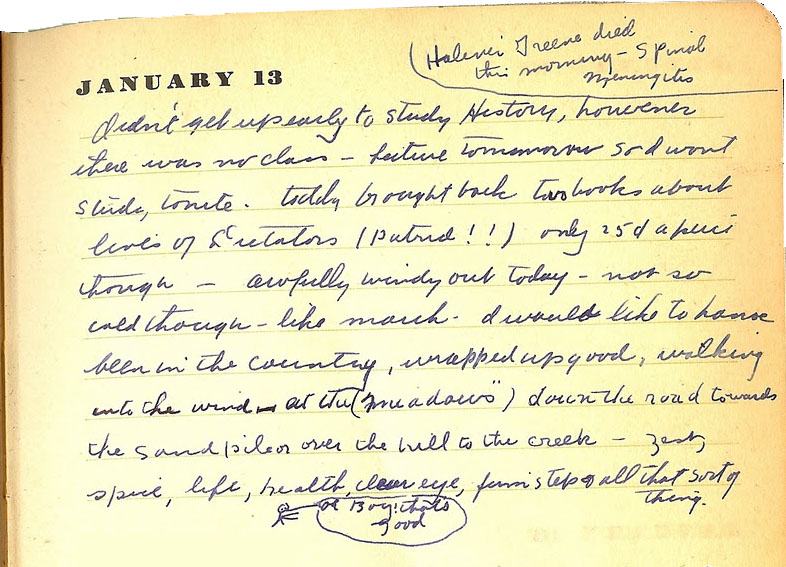 died
this morning - Spinal
Meningitis
JANUARY 13
Didn't get up early to study History, however
there was no class - lecture tomorrow so I wont
study tonite. Teddy brought back two books about
lives of Dictators (Putrid!!) only 25¢ a piece
though - awfully windy out today - not so
cold though - like march. I would like to have
been in the country, wrapped up good, walking
into the wind - at the ("meadows") down the road towards
the sand pile or over the hill to the creek - zesty
spice, life, health, clear eye, firm step & all that sort of
thing.
Boy! that's
good